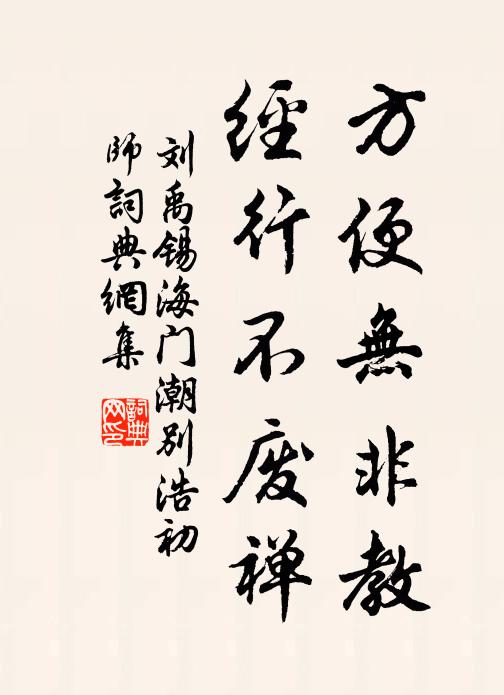 方便無非教
經行不废禅
刘禹锡海门潮别浩初
师詞典網集
詞典
网印